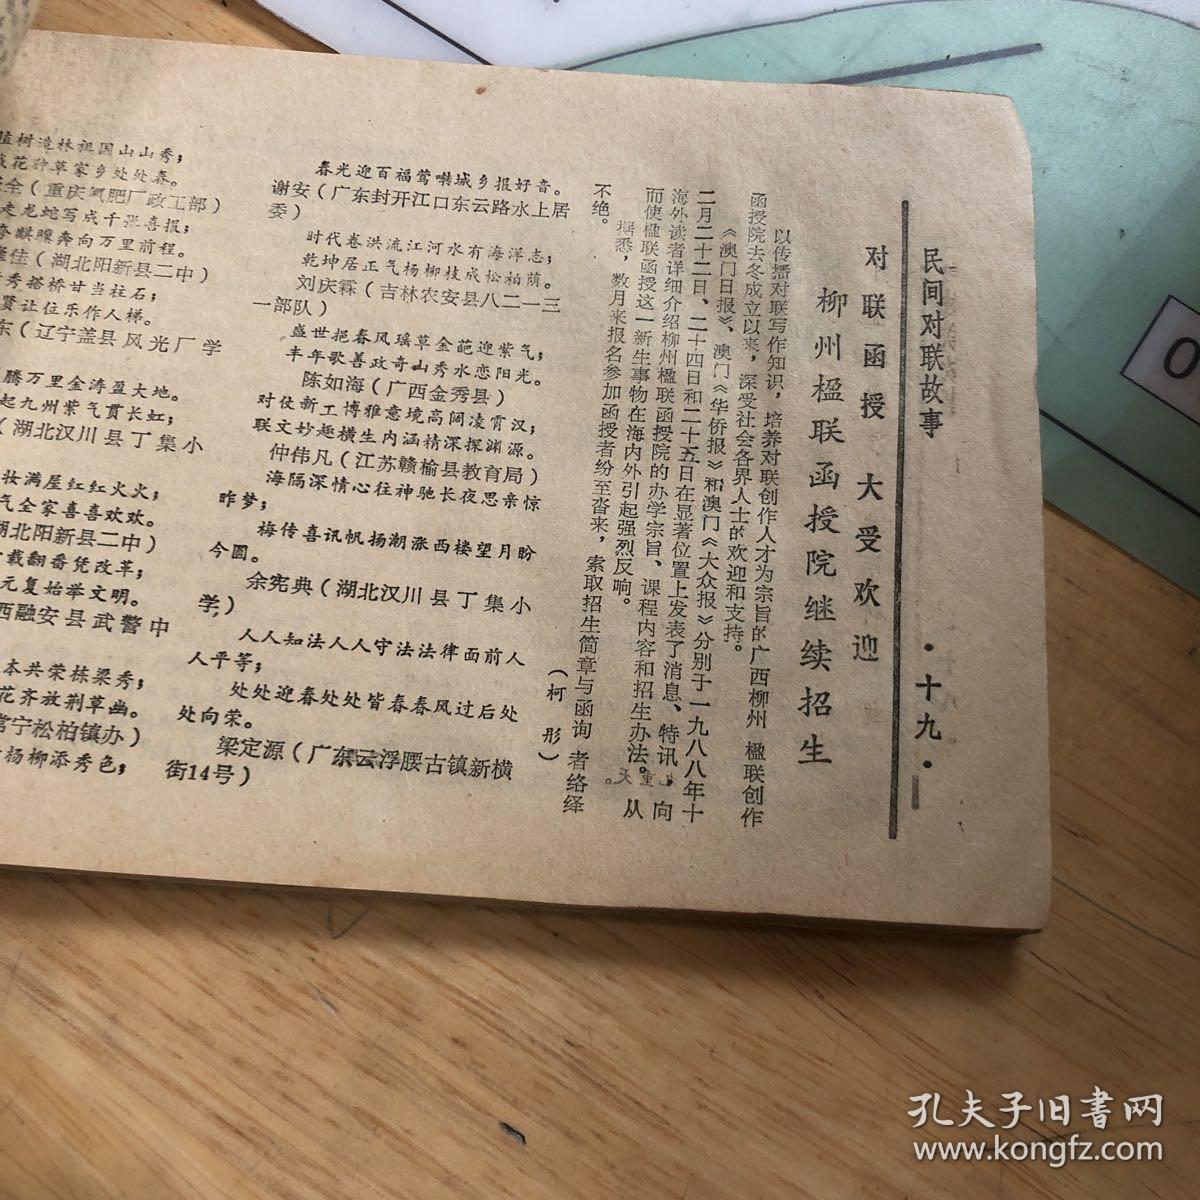 民间对联故事
·十九·
对联函授 大受欢迎
柳州楹联函授院继续招生
以传播对联写作知识，培养对联创作人才为宗旨的广西柳州 楹联创作
函授院去冬成立以来，深受社会各界人士的欢迎和支持。
《澳门日报》、澳门《华侨报》和澳门《大众报》分别于一九八八年十
二月二十二日、二十四日和二十五日在显著位置上发表了消息、特讯，向
海外读者详细介绍柳州楹联函授院的办学宗旨、课程内容和招生办法。从
而使楹联函授这一新生事物在海内外引起强烈反响。
据悉，数月来报名参加函授者纷至沓来，索取招生简章与函询 者络绎
不绝。
（柯 彤）
春光迎百福莺啭城乡报好音。
谢安（广东封开江口东云路水上居
委）
时代卷洪流江河水有海洋志；
乾坤居正气杨柳枝成松柏荫。
刘庆霖（吉林农安县八二一三
一部队）
盛世挹春风瑶草金葩迎紫气；
丰年歌善政奇山秀水恋阳光。
陈如海（广西金秀县）
对仗新工博雅意境高阔凌霄汉；
联文妙趣横生内涵精深探渊源。
仲伟凡（江苏赣榆县教育局）
海隔深情心往神驰长夜思亲惊
昨梦；
梅传喜讯帆扬潮涨西楼望月盼
今圆。
余宪典（湖北汉川县丁集小
学）
人人知法人人守法法律面前人
人平等；
处处迎春处处皆春春风过后处
处向荣。
梁定源（广东云浮腰古镇新横
街14号）
植树造林祖国山山秀；
栽花种草家乡处处春。
全（重庆氮肥厂政工部）
走龙蛇写成千张喜报；
骐骥奔向万里前程。
佳（湖北阳新县二中）
秀搭桥甘当柱石；
贤让位乐作人梯。
东（辽宁盖县风光厂学
腾万里金涛盈大地。
起九州紫气贯长虹；
（湖北汉川县丁集小
妆满屋红红火火；
气全家喜喜欢欢。
湖北阳新县二中）
载翻番凭改革；
元复始举文明。
西融安县武警中
本共荣栋梁秀；
花齐放荆草幽。
常宁松柏镇办）
杨柳添秀色；
孔夫子旧书网
www.kongfz.com